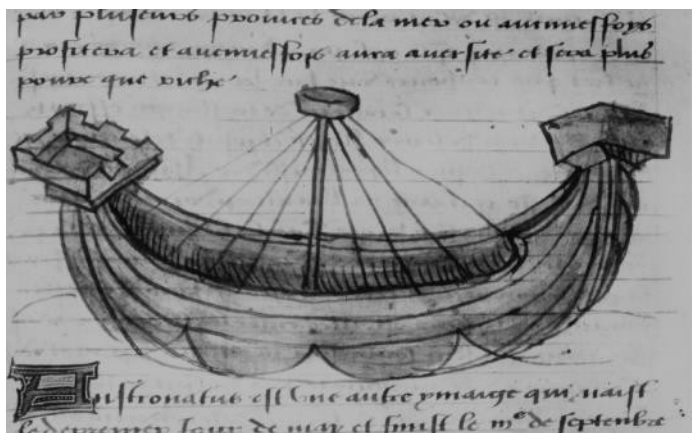 par plusieurs provinces de la mer ou aucuneffoys
profitera et aucuneffoys aura aversite et sera plus
povre que riche
Austronatus est vne autre ymaige qui naist
le derrenier Jour de mar et finist le mᵉ de septenbre